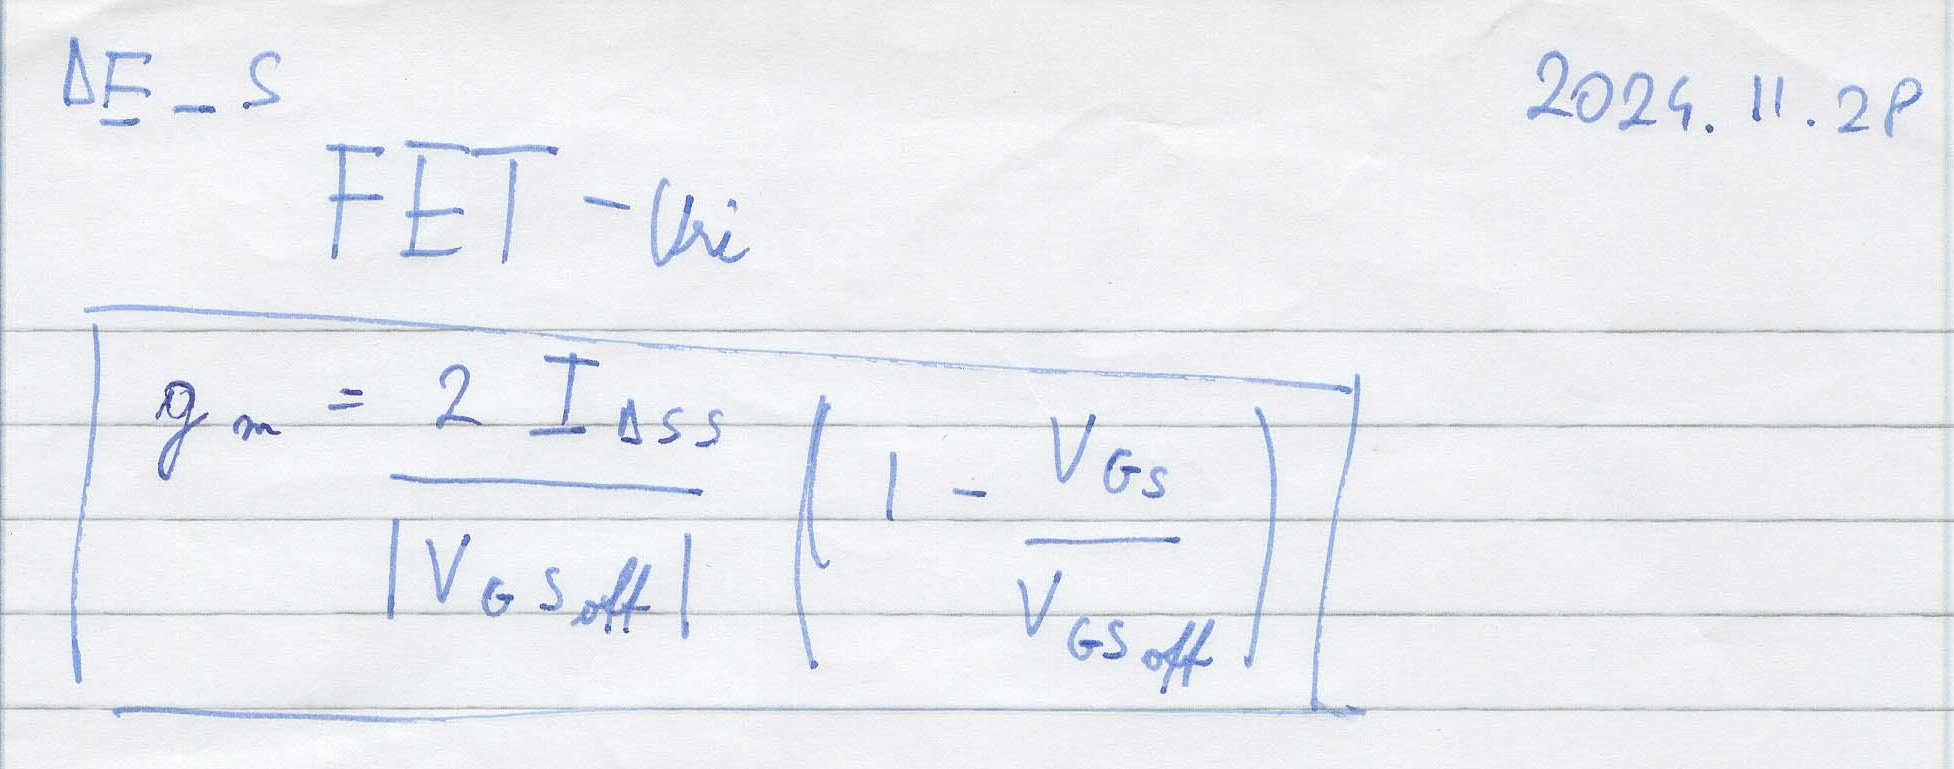 DE_S 2024.11.28
FET-uri
g_m = \frac{2 I_{DSS}}{|V_{GS_{off}}|} \left( 1 - \frac{V_{GS}}{V_{GS_{off}}} \right)